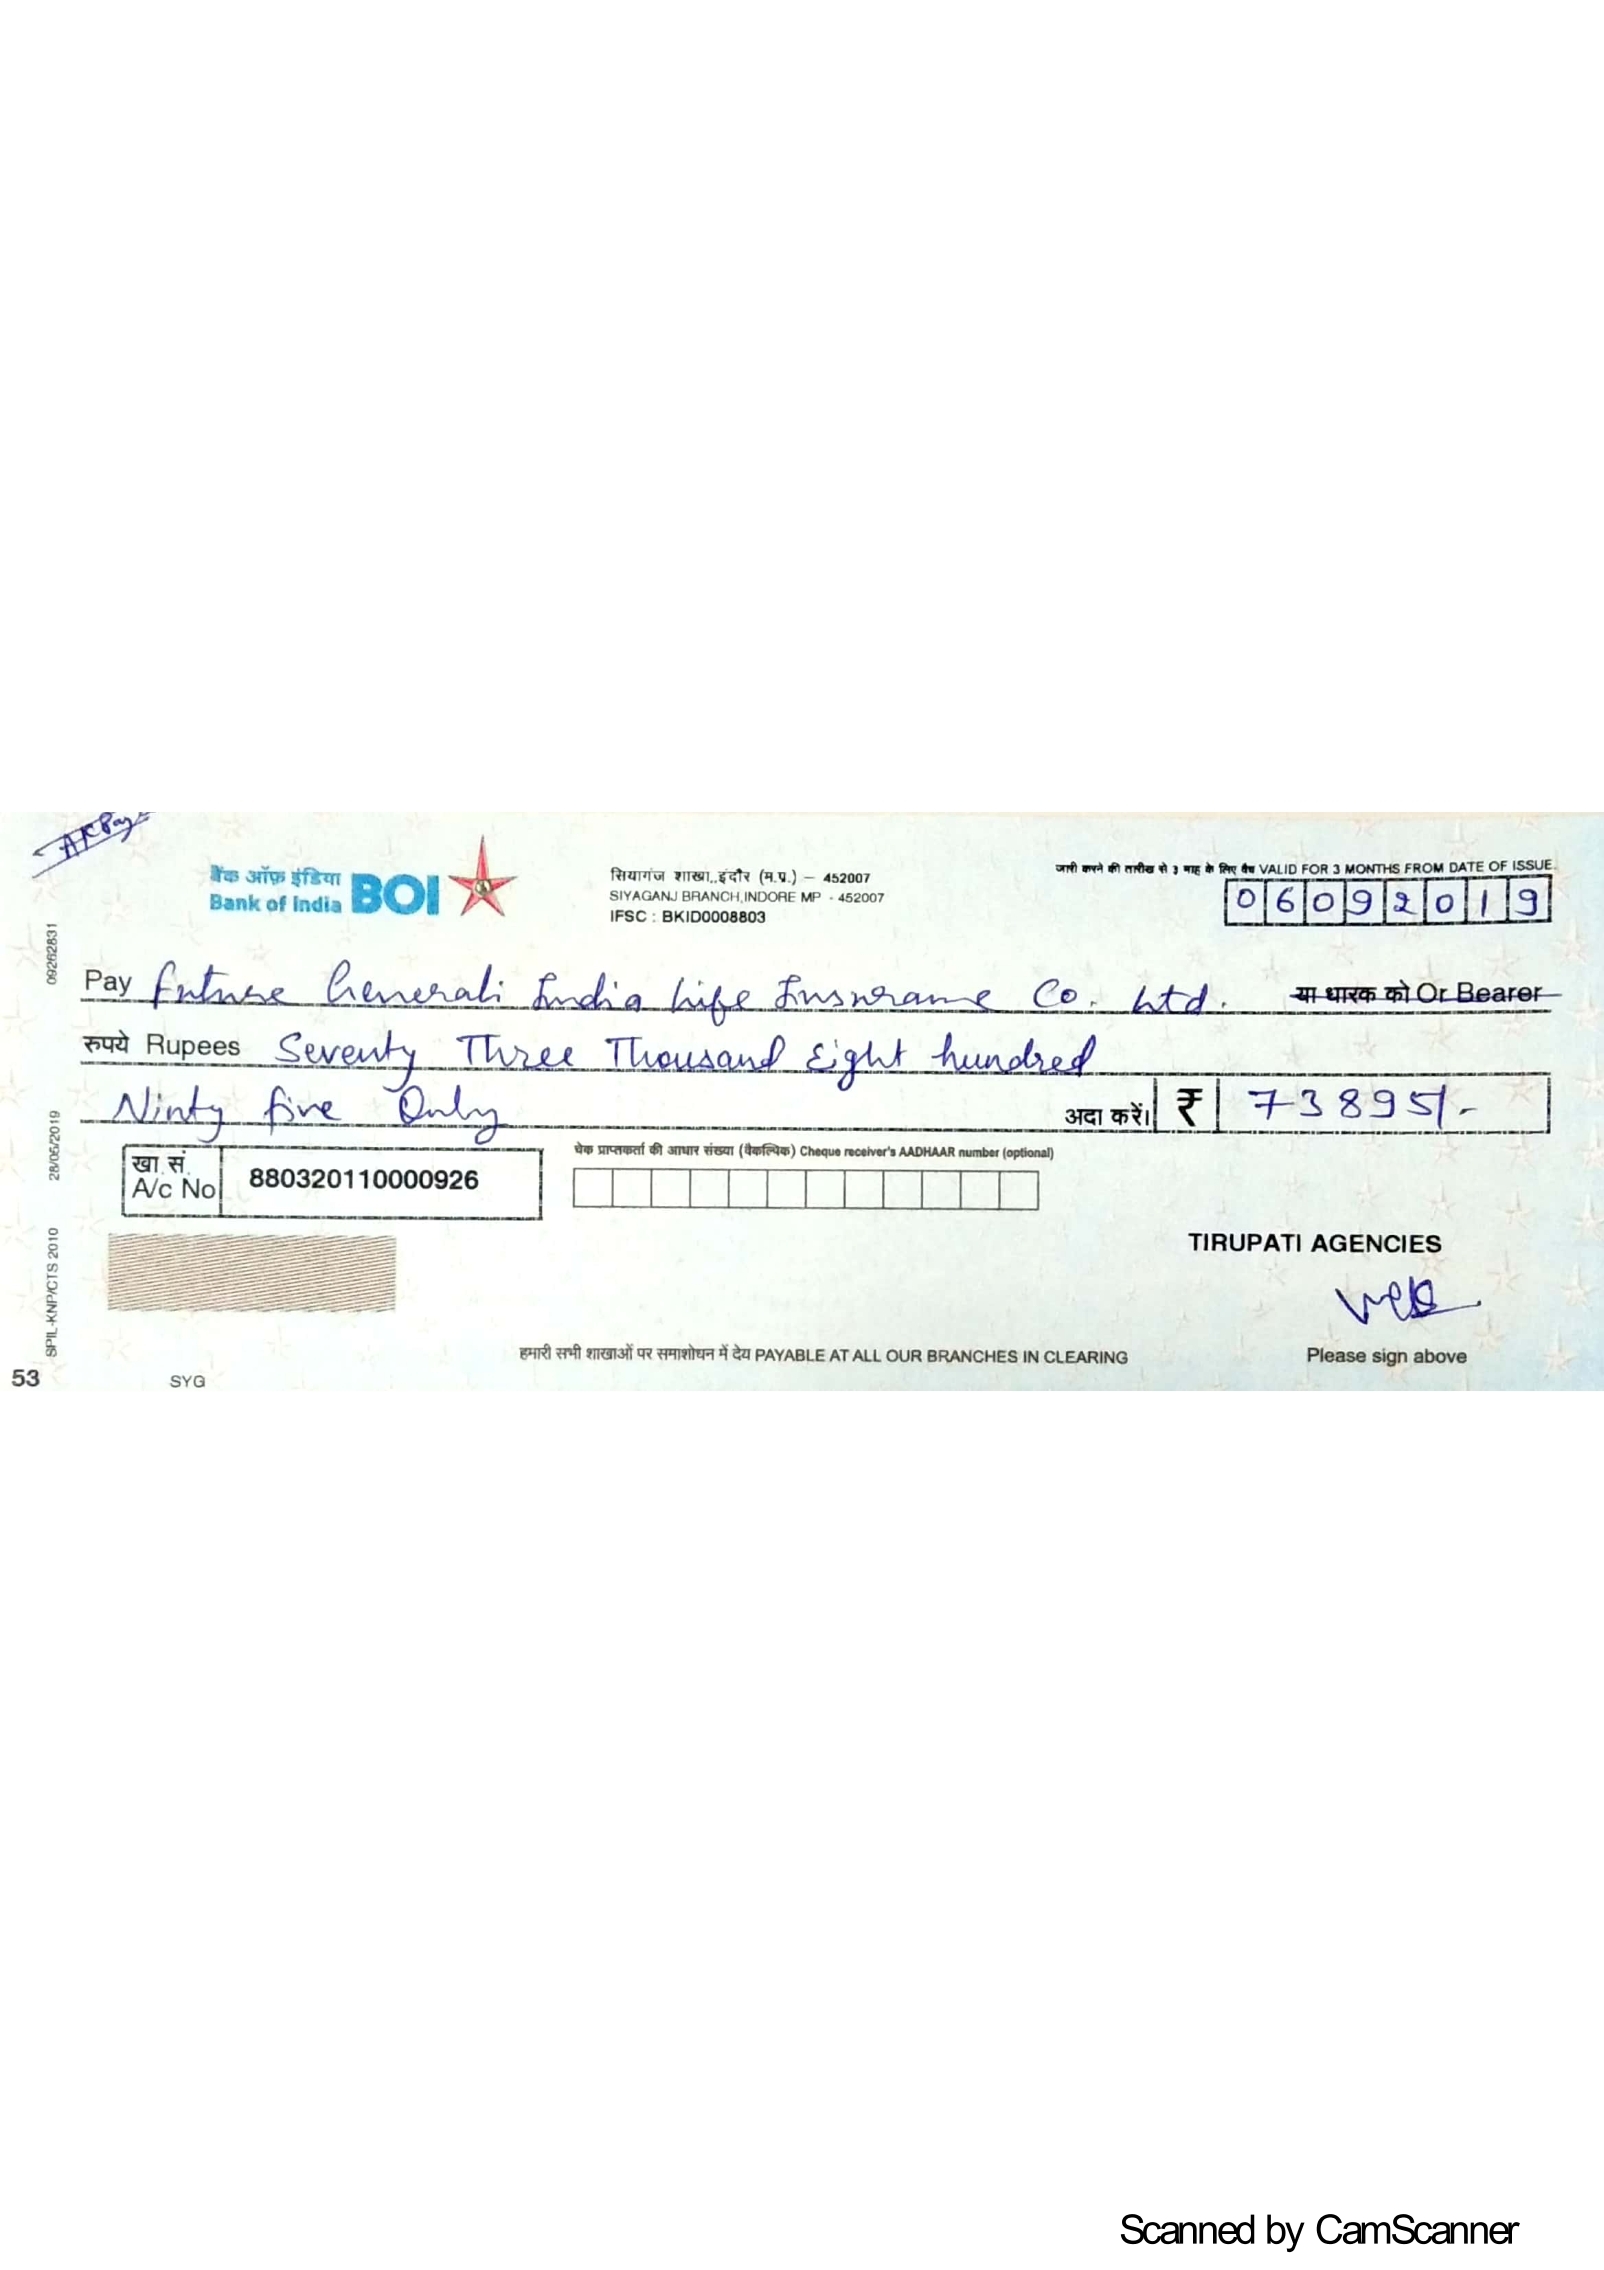 A/C Pay
बैंक ऑफ़ इंडिया
Bank of India BOI
सियागंज शाखा,,इंदौर (म.प्र.) – 452007
SIYAGANJ BRANCH,INDORE MP - 452007
IFSC : BKID0008803
जारी करने की तारीख से ३ माह के लिए वैध VALID FOR 3 MONTHS FROM DATE OF ISSUE
06092019
Pay Future Generali India Life Insurance Co. Ltd. या धारक को Or Bearer
रुपये Rupees Seventy Three Thousand Eight hundred
Ninty five Only अदा करें। ₹ 73895/-
खा.सं.
A/c No 880320110000926
चेक प्राप्तकर्ता की आधार संख्या (वैकल्पिक) Cheque receiver's AADHAAR number (optional)
TIRUPATI AGENCIES
हमारी सभी शाखाओं पर समाशोधन में देय PAYABLE AT ALL OUR BRANCHES IN CLEARING
Please sign above
53
SYG
SPIL-KNP/CTS 2010 28/05/2019 09262831
Scanned by CamScanner